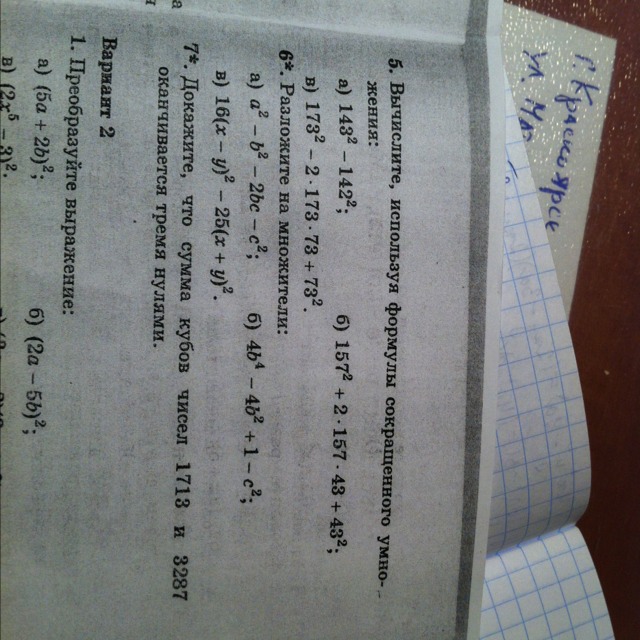 5. Вычислите, используя формулы сокращенного умно-
жения:
а) 143² − 142²; б) 157² + 2 · 157 · 43 + 43²;
в) 173² − 2 · 173 · 73 + 73².
6*. Разложите на множители:
а) a² − b² − 2bc − c²; б) 4b⁴ − 4b² + 1 − c²;
в) 16(x − y)² − 25(x + y)².
7*. Докажите, что сумма кубов чисел 1713 и 3287
оканчивается тремя нулями.
Вариант 2
1. Преобразуйте выражение:
а) (5a + 2b)²; б) (2a − 5b)²;
в) (2x⁵ − 3)².